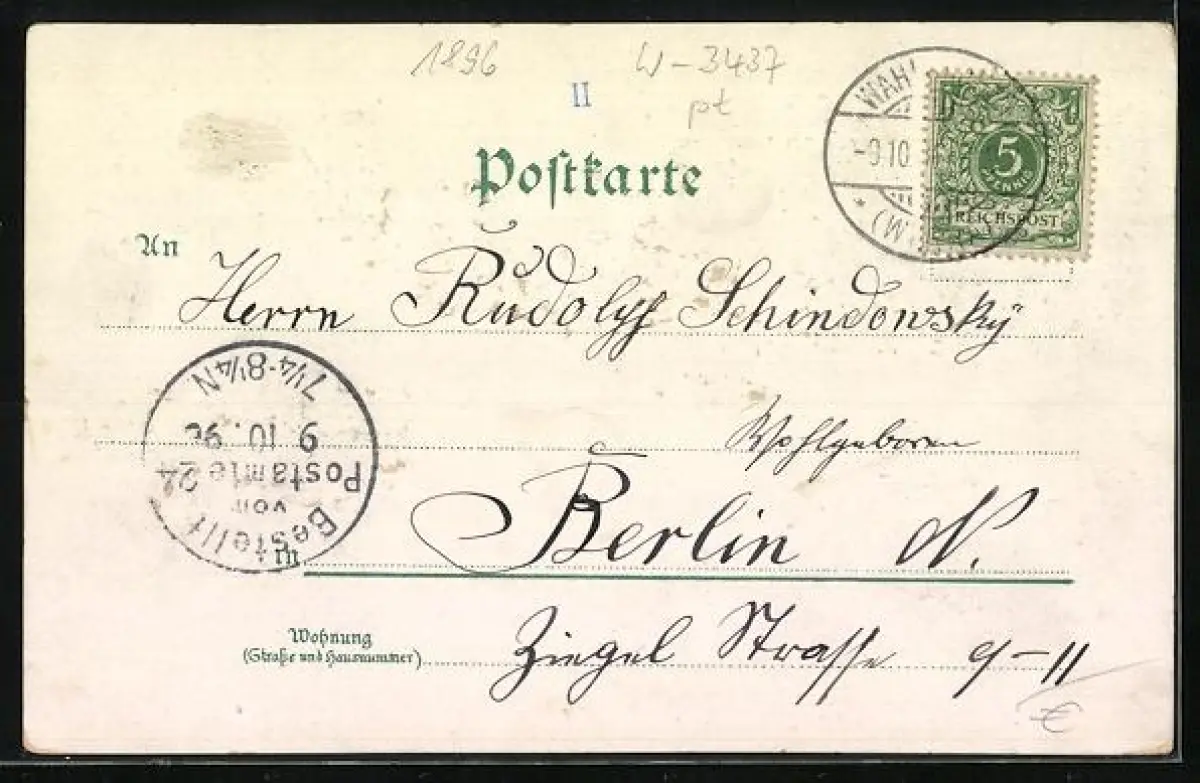 1896
W-3437
II
pt
WAH
-9.10
(W
5
PFENNIG
REICHSPOST
Postkarte
An
Herrn Rudolph Schindowsky
7¼-8¼N
9 10. 96
Postamte 24
vom
Bestellt
Wohlgeboren
in Berlin N.
Wohnung
(Straße und Hausnummer)
Ziegel Strasse 9-11
€